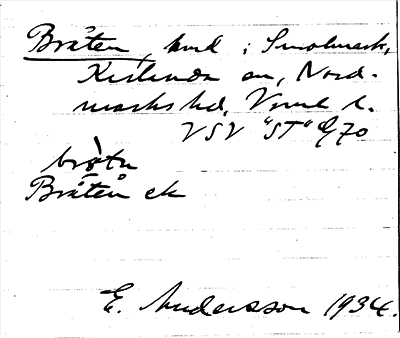 Bråten, hmd i Smolmark,
Karlanda sn, Nord-
marks hd, Vrml l.
VSV "ST" d/70
bròtn
Bråten ek
E. Andersson 1934.